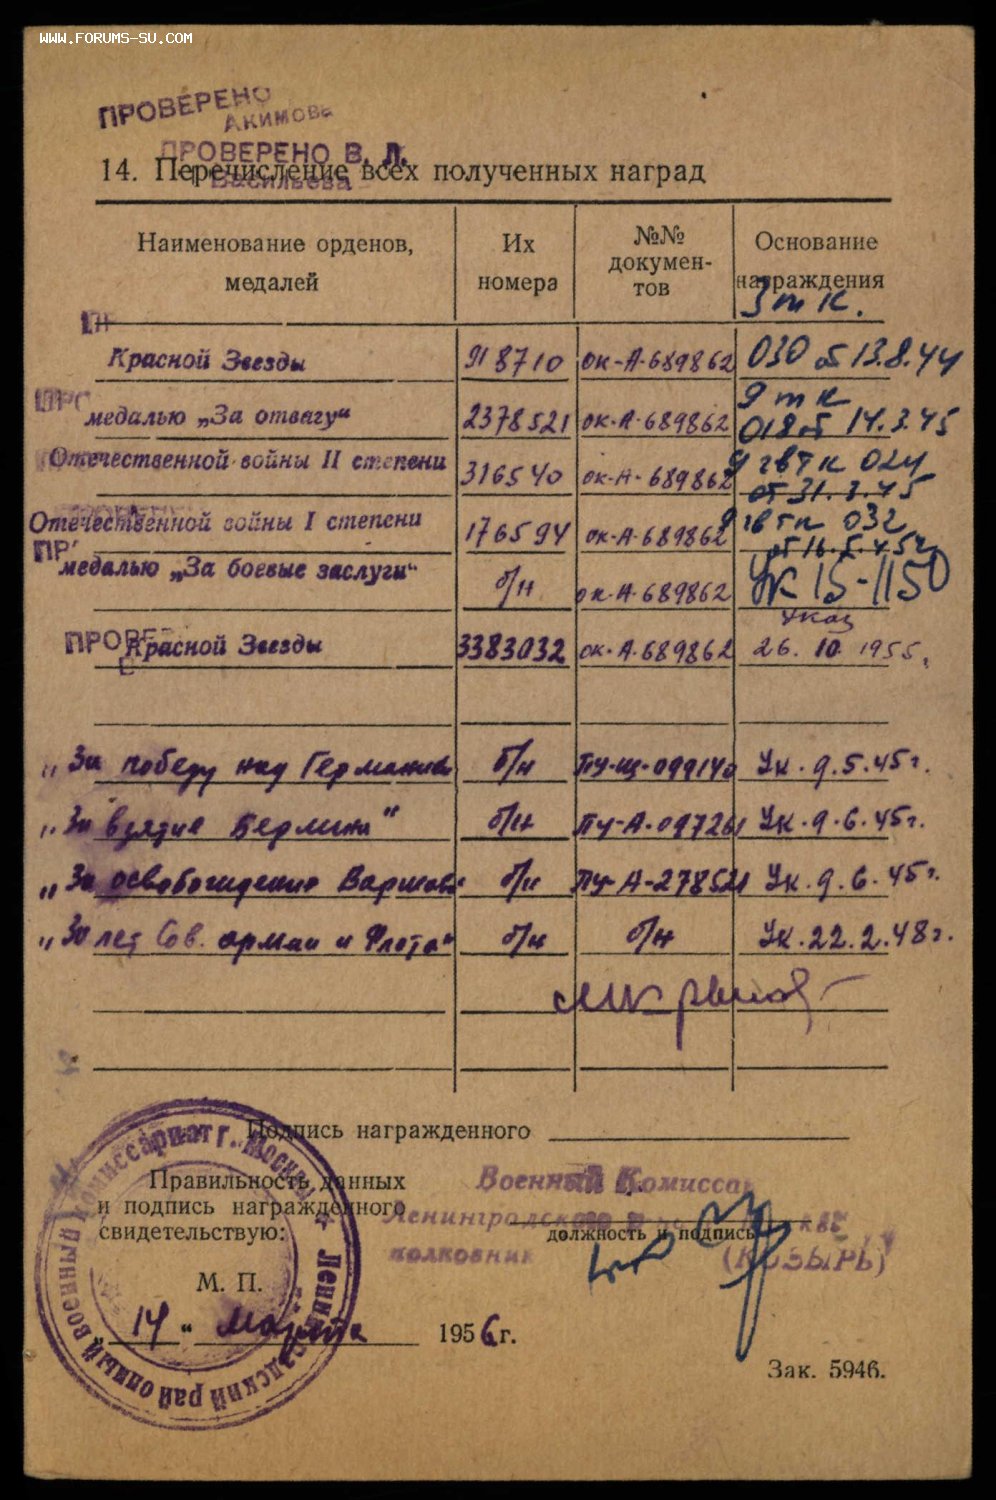 WWW.FORUMS-SU.COM
ПРОВЕРЕНО
АКИМОВА
ПРОВЕРЕНО В. Л.
Васильева
14. Перечисление всех полученных наград
Наименование орденов, медалей
Их номера
№№ докумен-тов
Основание награждения
3 тк.
Красной Звезды 918710 ОК-А-689862 030 от 13.8.44
9 тк
медалью „За отвагу“ 2378521 ОК-А-689862 018 от 14.3.45
Отечественной войны II степени 316540 ОК-А-689862 9 гв тк 024 от 31.3.45
Отечественной войны I степени 176594 ОК-А-689862 9 гв тк 032 от 16.5.45г
медалью „За боевые заслуги“ б/н ОК-А-689862 УК 15-1150
Указ
ПРОВЕ
Красной Звезды 3383032 ОК-А-689862 26.10.1955.
„За победу над Германией б/н ПУ-Щ-099140 Ук.9.5.45г.
„За взятие Берлина“ б/н ПУ-А-097261 Ук.9.6.45г.
„За освобождение Варшавы б/н ПУ-А-278521 Ук.9.6.45г.
„30 лет Сов. армии и Флота“ б/н б/н Ук.22.2.48г.
Подпись награжденного
Правильность данных и подпись награжденного свидетельствую:
Военный Комиссар
Ленинградского
полковник (КОЗЫРЬ)
должность и подпись
М. П.
„14“ Марта 1956г.
Зак. 5946.
Ленинградский районный военный комиссариат г. Москвы